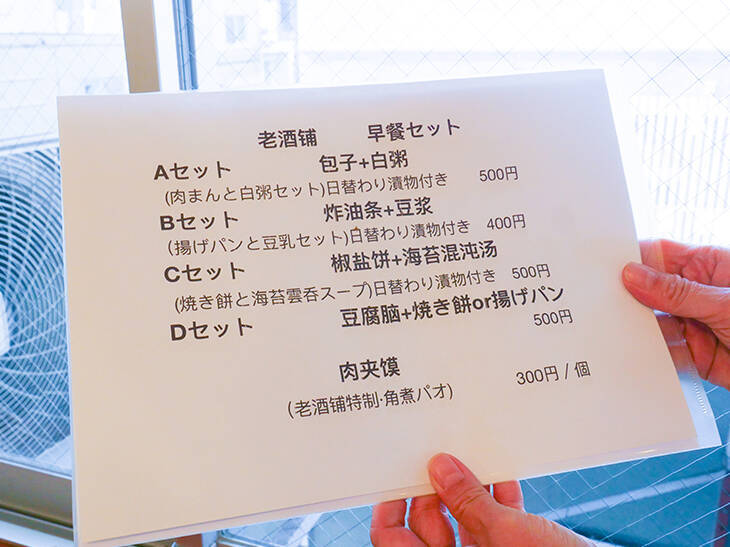 老酒铺 早餐セット
Aセット 包子+白粥
(肉まんと白粥セット)日替わり漬物付き 500円
Bセット 炸油条+豆浆
(揚げパンと豆乳セット)日替わり漬物付き 400円
Cセット 椒盐饼+海苔混沌汤
(焼き餅と海苔雲呑スープ)日替わり漬物付き 500円
Dセット 豆腐脑+焼き餅or揚げパン
500円
肉夹馍
(老酒铺特制·角煮パオ) 300円 / 個